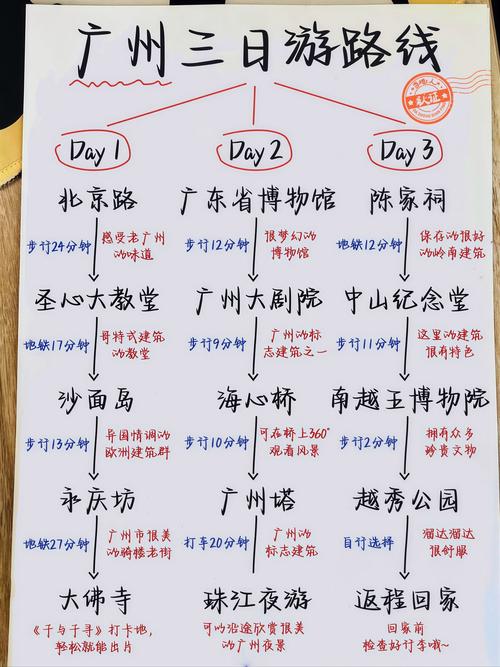 广州三日游路线
认证
Day 1
Day 2
Day 3
北京路
步行24分钟
感受老广州
的味道
圣心大教堂
地铁17分钟
哥特式建筑
的教堂
沙面岛
步行13分钟
异国情调的
欧洲建筑群
永庆坊
地铁27分钟
广州市很美
的骑楼老街
大佛寺
《千与千寻》打卡地,
轻松就能出片
广东省博物馆
步行12分钟
很梦幻的
博物馆
广州大剧院
步行9分钟
广州的标
志建筑之一
海心桥
步行10分钟
可在桥上360°
观看风景
广州塔
打车20分钟
广州的
标志建筑
珠江夜游
可以沿途欣赏很美
的广州夜景
陈家祠
地铁12分钟
保存的很好
的岭南建筑
中山纪念堂
步行11分钟
这里的建筑
很有特色
南越王博物院
步行2分钟
拥有众多
珍贵文物
越秀公园
自行选择
溜达溜达
很舒服
返程回家
回家前
检查好行李哦~